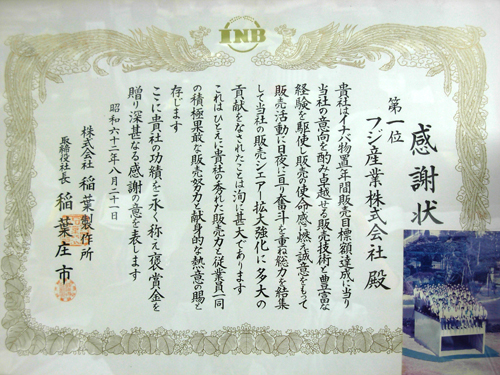 INB
感謝状
第一位
フジ産業株式会社 殿
貴社はイナバ物置年間販売目標額達成に当り
当社の意向を酌み卓越せる販売技術と豊富な
経験を駆使し販売の使命感に燃え誠意をもって
販売活動に日夜に亘り奮斗を重ね総力を結集
して当社の販売シェアー拡大強化に多大の
貢献をなされたことは洵に甚大であります
これはひとえに貴社の秀れた販売力と従業員一同
の積極果敢な販売努力と献身的な熱意の賜と
存じます
ここに貴社の功績を永く称え褒賞金を
贈り深甚なる感謝の意を表します
昭和六十二年八月二十一日
株式会社 稲葉製作所
取締役社長 稲葉庄市